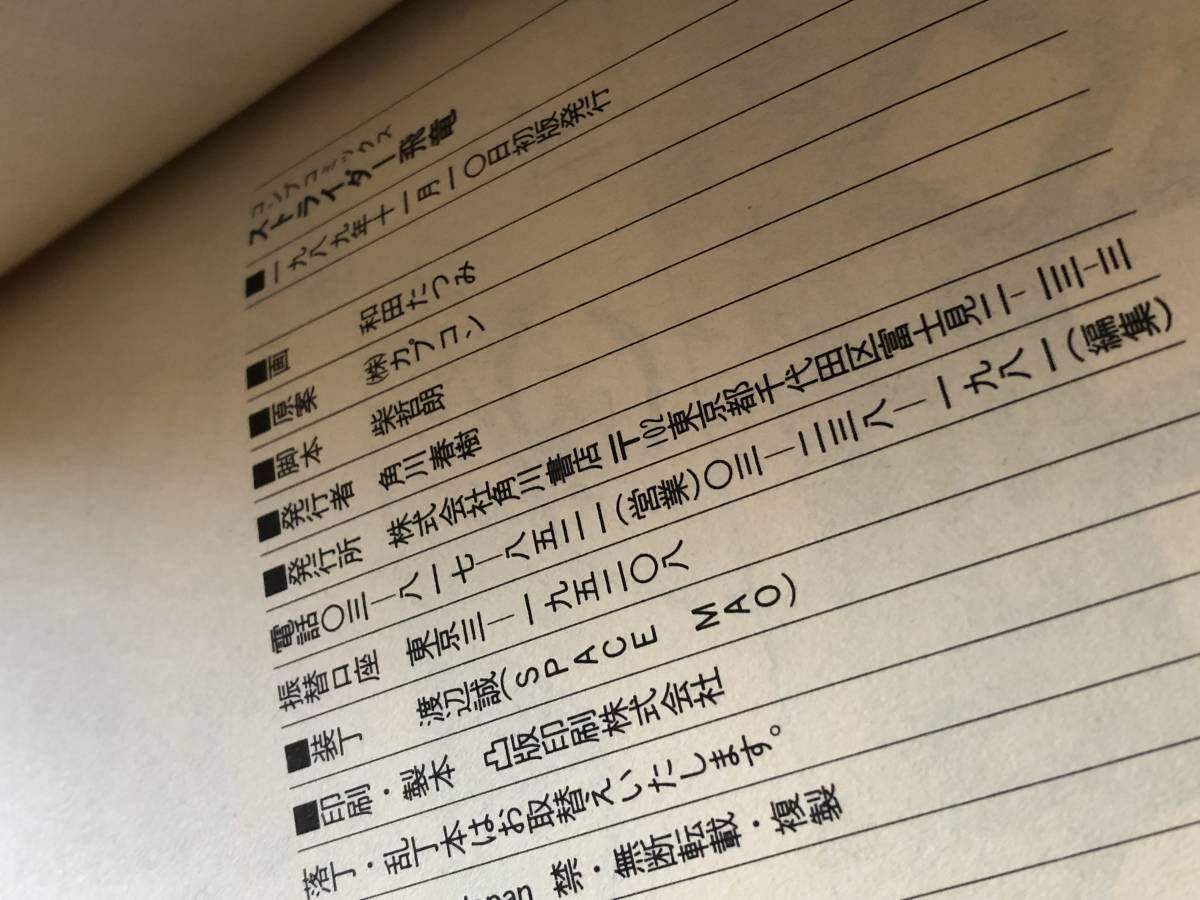 コンプコミックス
ストライダー飛竜
■一九八九年十一月一〇日初版発行
■画 和田たつみ
■原案 ㈱カプコン
■脚本 柴哲朗
■発行者 角川春樹
■発行所 株式会社角川書店 〒102東京都千代田区富士見二-一三-三
電話〇三-八一七-八五二一(営業)〇三-二三八-一九八一(編集)
振替口座 東京三-一九五二〇八
■装丁 渡辺誠(SPACE MAO)
■印刷・製本 凸版印刷株式会社
落丁・乱丁本はお取替えいたします。
禁・無断転載・複製